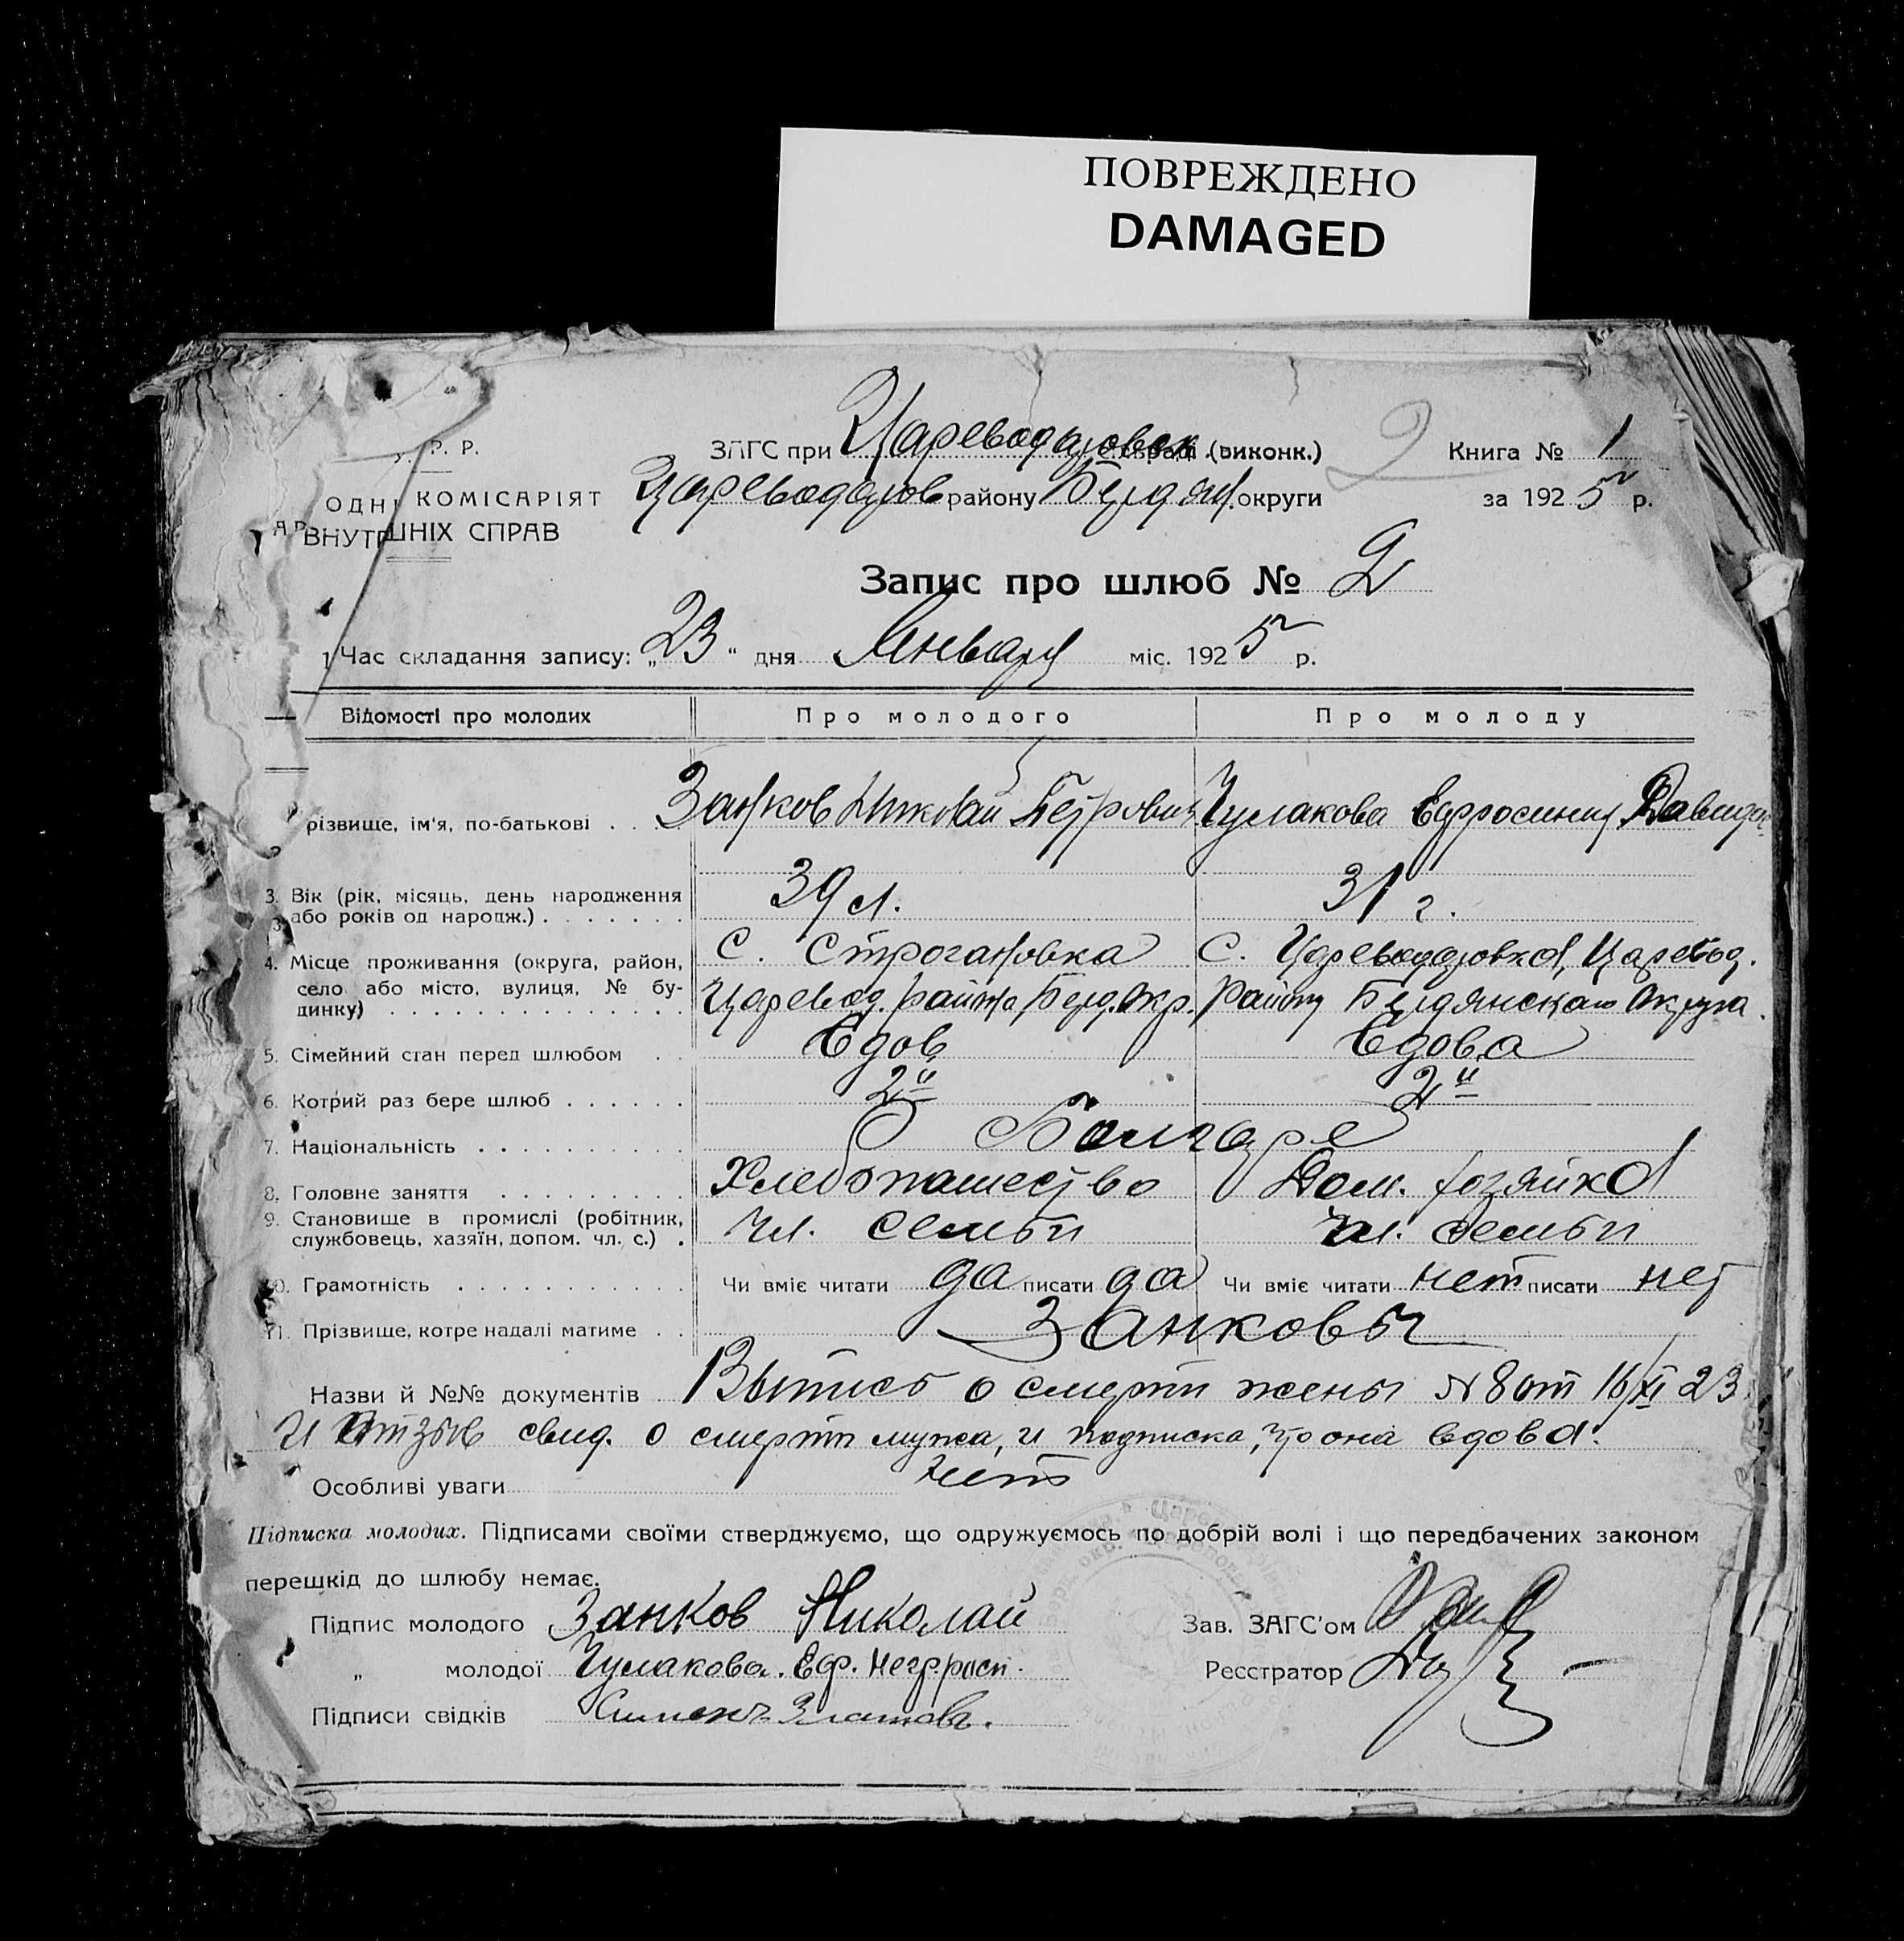 ПОВРЕЖДЕНО
DAMAGED
Р. Р.
ОДН КОМІСАРІЯТ
ВНУТРІШНІХ СПРАВ
ЗАГС при Цареводаровск. (виконк.)
Цареводаров району Бердян. округи
2
Книга № 1
за 1925 р.
Запис про шлюб № 2
1 Час складання запису: „23“ дня Января міс. 1925 р.
Відомості про молодих Про молодого Про молоду
різвище, ім'я, по-батькові . . . Занков Николай Петрович Чулакова Ефросиния Давидов
3. Вік (рік, місяць, день народження
або років од народж.) . . . . . . . 39 л. 31 г.
4. Місце проживання (округа, район, С. Строгановка С. Цареводаровка, Царевод.
село або місто, вулиця, № бу-
динку) . . . . . . . . . . . . . . Царевод. района Берд. Окр. району Бердянскаго Округа.
5. Сімейний стан перед шлюбом . . Вдов Вдова
6. Котрий раз бере шлюб . . . . . . 2й 2й
7. Національність . . . . . . . . . . Болгаре
8. Головне заняття . . . . . . . . . Хлебопашество Дом. хозяйка
9. Становище в промислі (робітник, Чл. семьи чл. семьи
службовець, хазяїн, допом. чл. с.) .
10. Грамотність . . . . . . . . . . . Чи вміє читати да писати да Чи вміє читати нет писати нет
11. Прізвище, котре надалі матиме . . Занковы
Назви й №№ документів Выпись о смерти жены № 8 от 16/XI 23
и свид. о смерти мужа, и подписка, что она вдова.
Особливі уваги нет
Підписка молодих. Підписами своїми стверджуємо, що одружуємось по добрій волі і що передбачених законом
перешкід до шлюбу немає.
Підпис молодого Занков Николай Зав. ЗАГС'ом
„ молодої Чулакова. Еф. Реєстратор
Підписи свідків Златовъ.